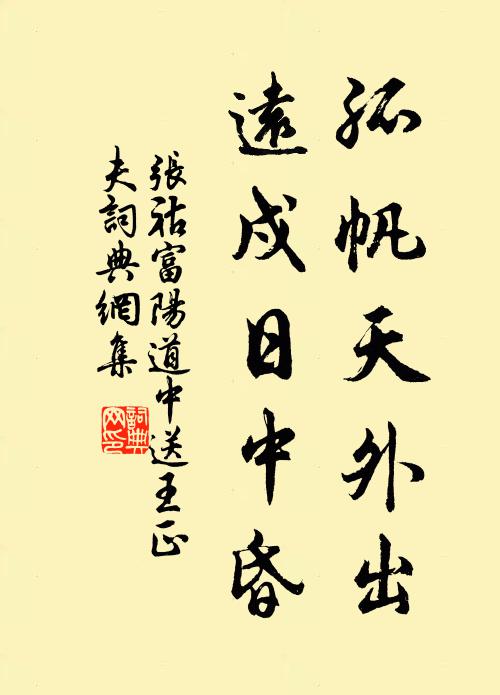 孤帆天外出
遠戍日中昏
張祜富陽道中送王正
夫詞典網集
詞典網印